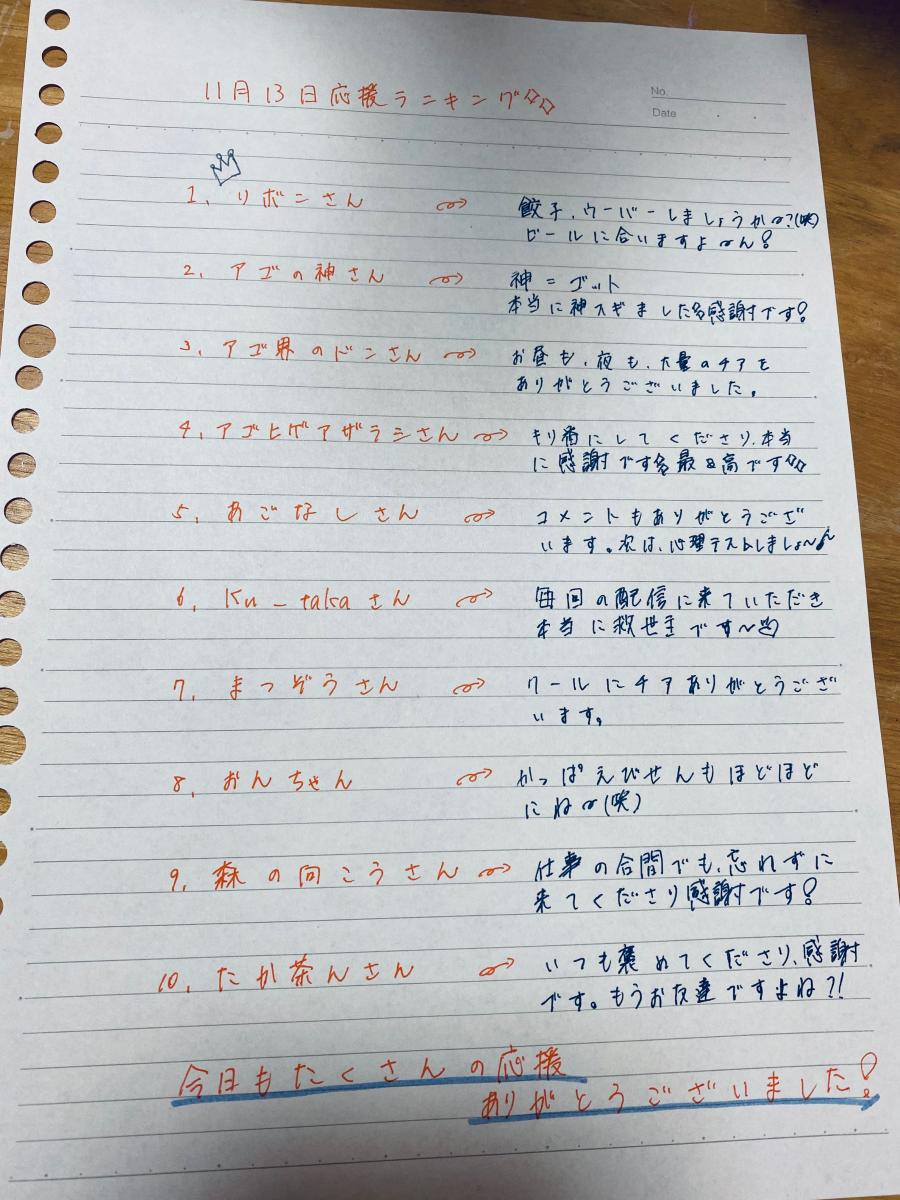 No.
Date
11月13日応援ランキング☆☆
1. リボンさん
餃子、ウーバーしましょうか〜?(笑)
ビールに合いますよ〜ん!
2. アゴの神さん
神=ゴット
本当に神スギました感謝です!
3. アゴ界のドンさん
お昼も、夜も、大量のチアを
ありがとうございました。
4. アゴヒゲアザラシさん
キリ番にしてくださり、本当
に感謝です最&高です☆☆
5. あごなしさん
コメントもありがとうござ
います。次は、心理テストしましょ〜
6. Ku-takaさん
毎回の配信に来ていただき
本当に救世主です〜
7. まつぞうさん
クールにチアありがとうござ
います。
8. おんちゃん
かっぱえびせんもほどほど
にね〜(笑)
9. 森の向こうさん
仕事の合間でも、忘れずに
来てくださり感謝です!
10. たか茶んさん
いつも褒めてくださり、感謝
です。もうお友達ですよね?!
今日もたくさんの応援
ありがとうございました!